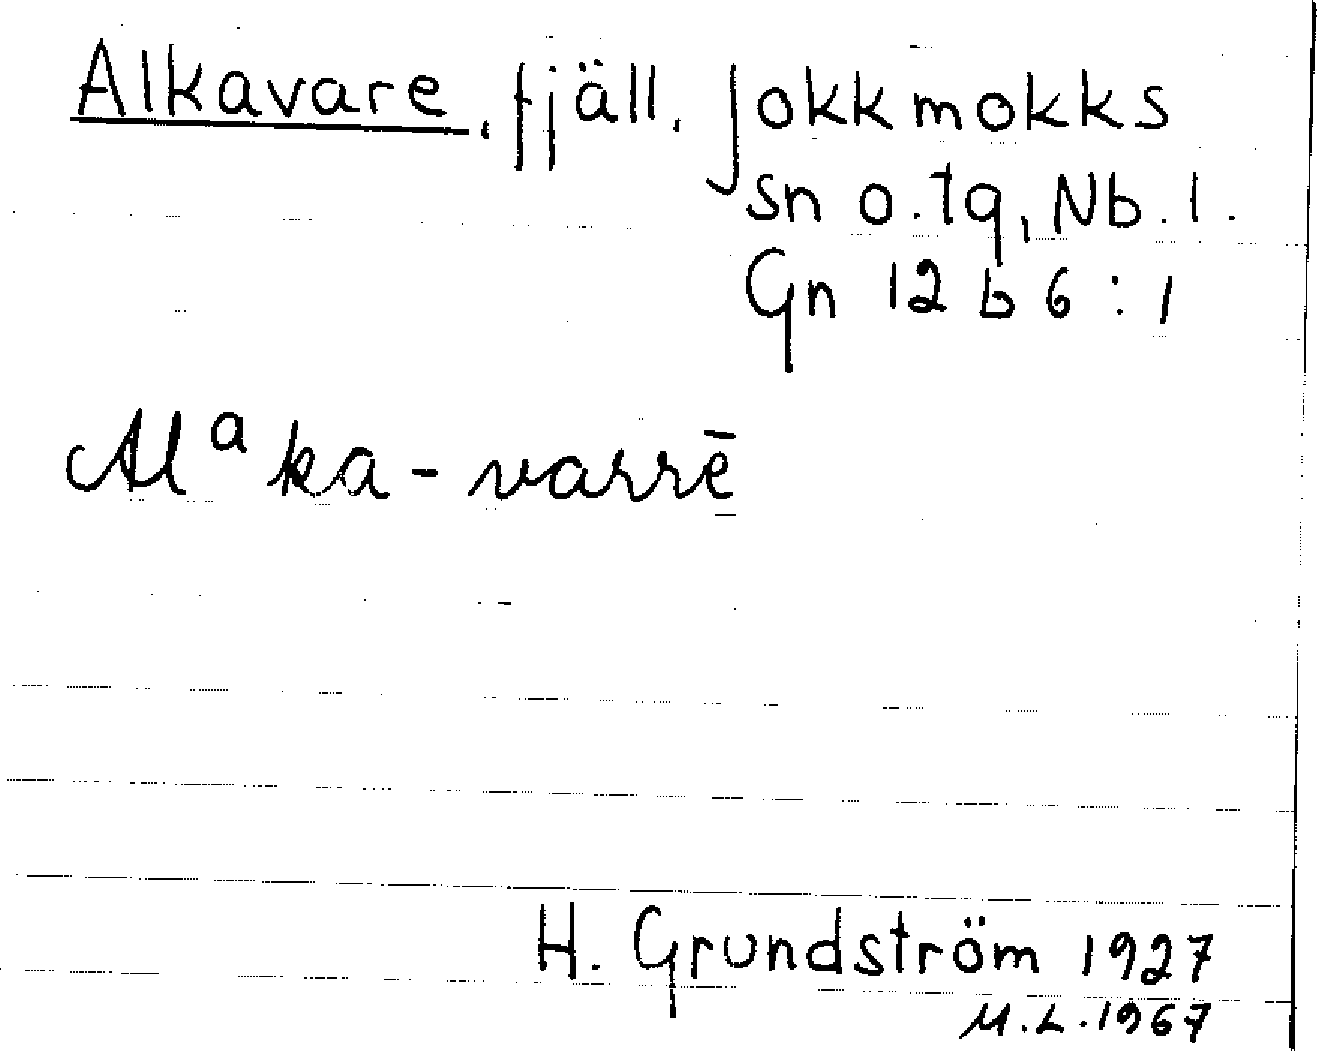 Alkavare, fjäll. Jokkmokks
sn o. tg, Nb. l.
Gn 12 b 6:1
Alᵃka-varrē
H. Grundström 1927
M.L. 1967